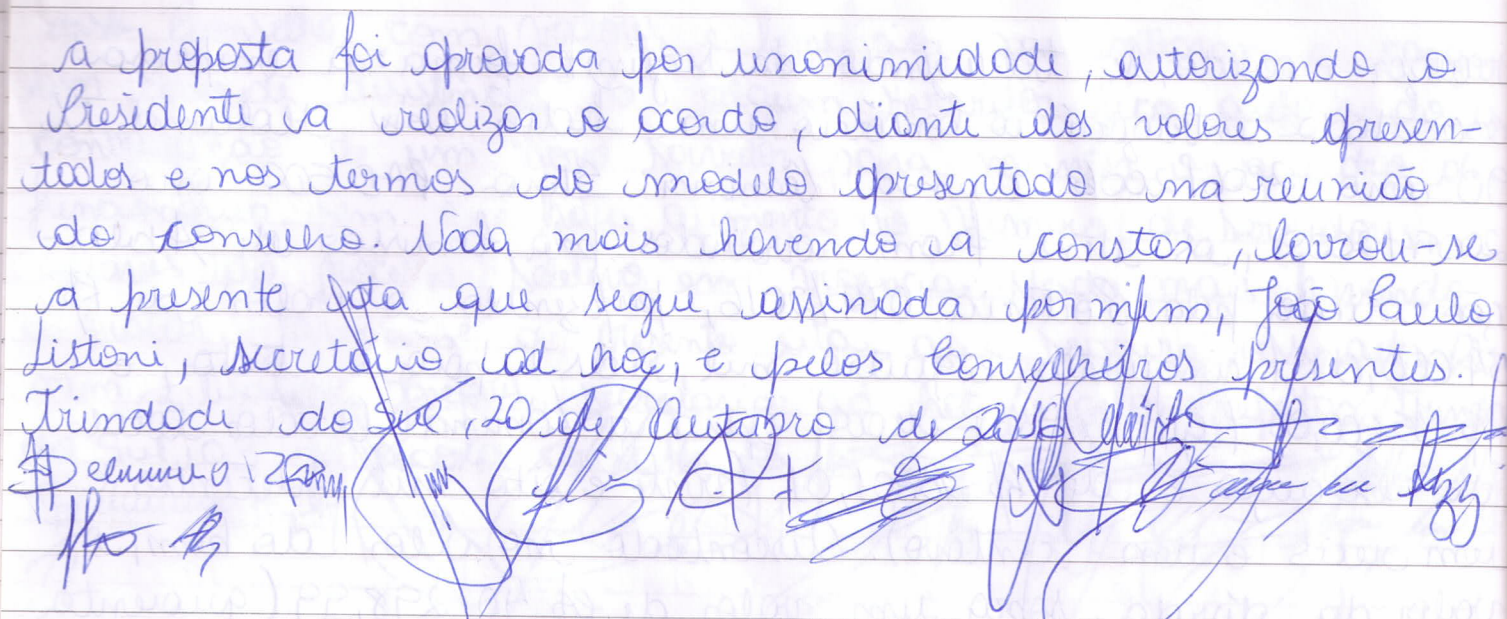 a proposta foi aprovada por unanimidade, autorizando o
Presidente a realizar o acordo, diante dos valores apresen-
tados e nos termos do modelo apresentado na reunião
do conselho. Nada mais havendo a constar, lavrou-se
a presente ata que segue assinada por mim, João Paulo
Listoni, secretário ad hoc, e pelos Conselheiros presentes.
Trindade do Sul, 20 de Outubro de 2016